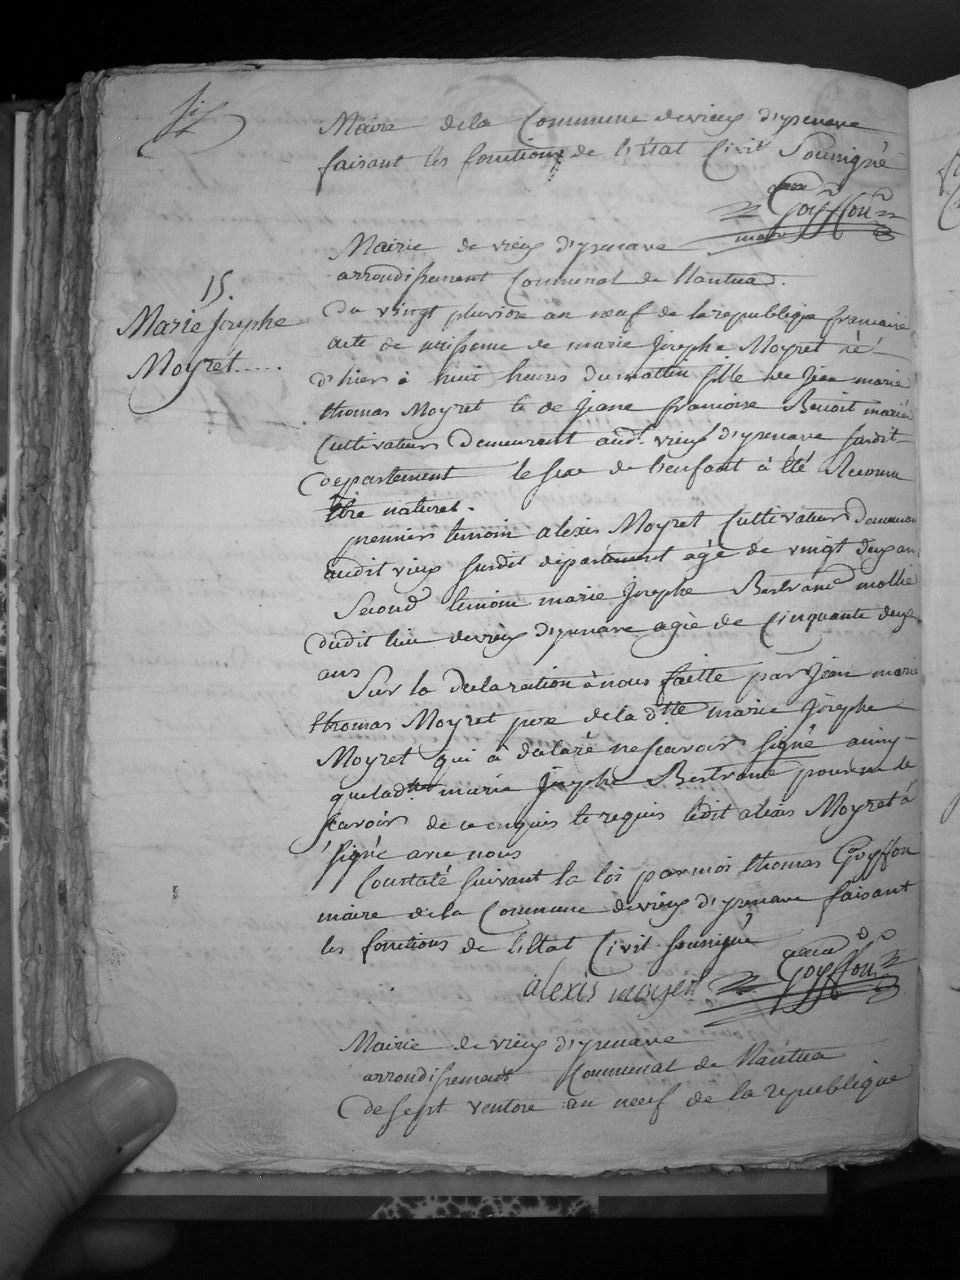 six
Maire de la Commune devieux d'yzenave
faisant les fonctions de l'Etat Civil Soussigné
Goyffon
maire
Mairie de vieux d'yzenave
arrondissement Communal de Nantua.
15.
Marie Josephe
Moyret.....
Du vingt pluviose an neuf de la republique francaise
acte de naissance de marie Josephe Moyret né
d'hier à huit heures du mattin fille de Jean marie
thomas Moyret et de Jeane francoise Benoit mariés
Cultivateurs demeurent aud. vieux d'yzenave susdit
Departement le sexe de l'enfant à été Reconnu
Etre naturel.
premier temoin alexis Moyret Cultivateur demeurant
audit vieux susdit departement agé de vingt deux an
Second temoin marie Josephe Bertrand
dudit lieu devieux d'yzenave agée de Cinquante deux
ans
Sur la declaration à nous faitte par Jean marie
thomas Moyret pere de la dtte marie Josephe
Moyret qui à declaré ne scavoir signé ainsy
que ladtte marie Josephe Bertrand pour ne le
scavoir de ce enquis et requis ledit alexis Moyret à
signé avec nous
Constaté suivant la loi par moi thomas Goyffon
maire de la Commune devieux d'yzenave faisant
les fonctions de l'Etat Civil soussigné
alexis moyret Goyffon
Mairie de vieux d'yzenave
arrondissement Communal de Nantua
de sept ventose an neuf de la republique